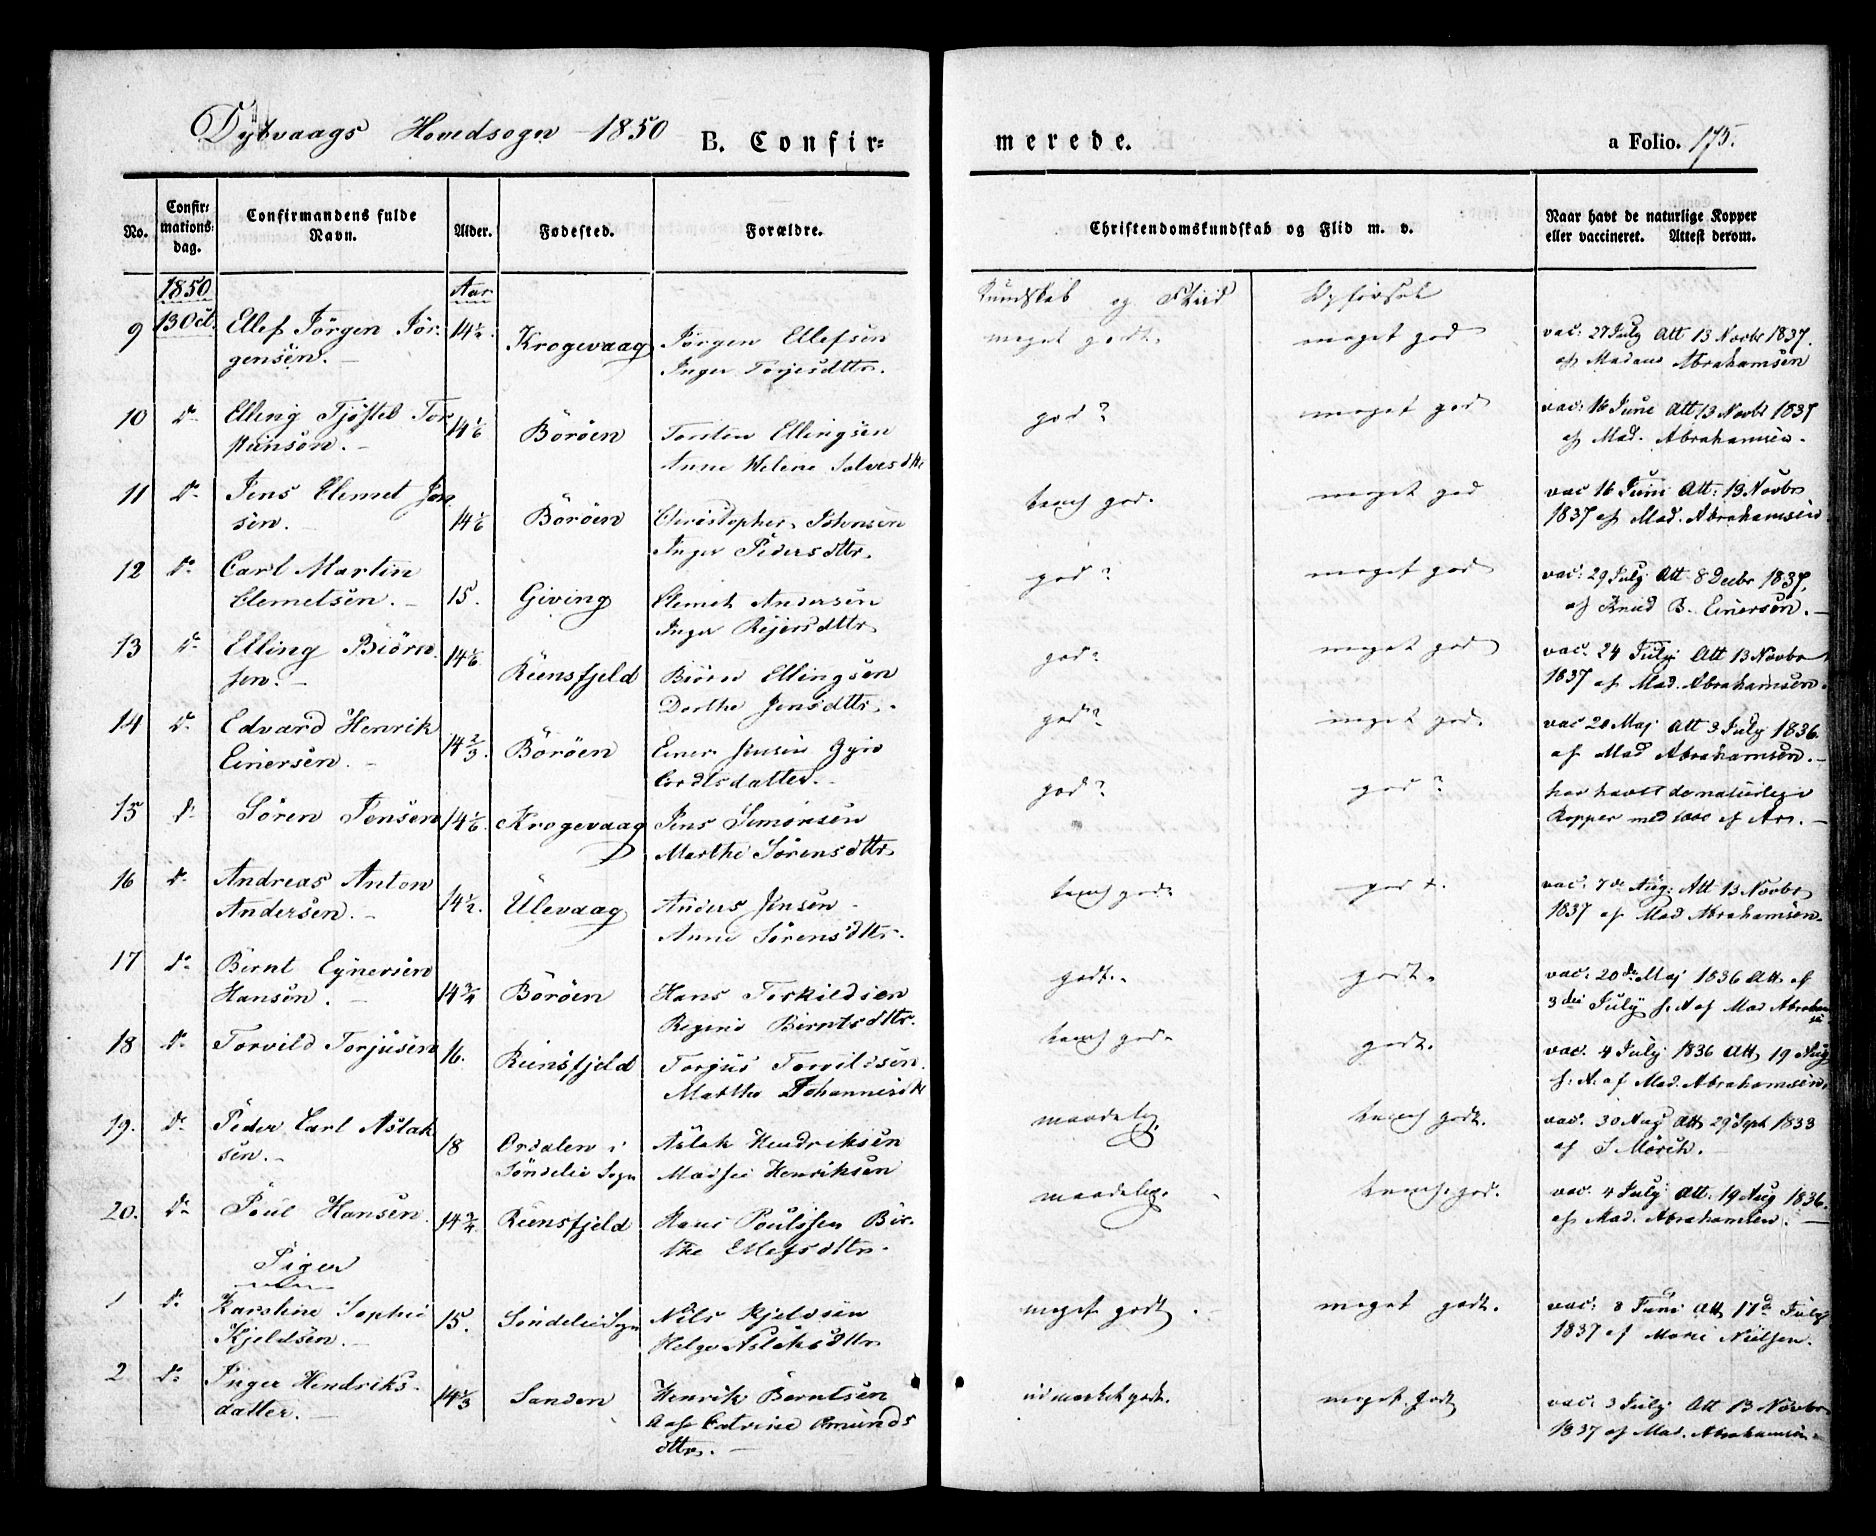 Dybvaags Hovedsogn 1850 B. Confir=
merede.
a Folio. 175.
No.
Confir=
mations=
dag.
Confirmandens fulde
Navn.
Alder.
Fødested.
Forældre.
Christendomskundskab og Flid m. v.
Naar havt de naturlige Kopper
eller vaccineret. Attest derom.
1850
Aar
Kundskab og Flid
Opførsel
9 13 Oct. Ellef Jörgen Jör-
gensen.
14½ Krogevaag Jörgen Ellefsen
Inger Torjesdttr.
meget godt. meget god
vac: 27 July Att 13 Novbr 1837.
af Madame Abrahamsen
10 Do Elling Tjöstel Tor
stensön.
14⅙ Boröen Torsten Ellingsen
Anne Helene Salvesdttr
god? meget god
vac: 16 June Att 13 Novbr 1837
af Mad. Abrahamsen.
11 Do Jens Clemet Jon
sen.
14⅙ Boröen Christopher Johnsen
Inger Pedersdttr.
temel god. meget god
vac 16 Juni Att: 13 Novbr
1837 af Mad. Abrahamsen
12 Do Carl Martin
Clemetsen.
15. Giving Clemet Andersen
Inger Reiersdttr
god? meget god
vac: 29 July Att 8 Decbr 1837,
af Knud B. Einersen.
13 Do Elling Biörn
sen.
14⅙ Reensfjeld Biörn Ellingsen
Dorthe Jensdttr.
god? meget god
vac. 24 July Att 13 Novbr
1837 af Mad. Abrahamsen.
14 Do Edvard Henrik
Einersen.
14⅔. Boröen Einer Jensen Gyro
Cordtsdatter.
god? meget god.
vac 20 Maj Att 3 July 1836.
af Mad Abrahamsen.
15 Do Sören Jensen 14⅙. Krogevaag Jens Simonsen
Marthe Sörensdttr
god? god?
har havt de naturlige
Kopper med af Ar.
16 Do Andreas Anton
Andersen.
14½. Ulevaag Anders Jensen
Anne Sörensdttr.
temel god. god
vac: 7de Aug: Att 13 Novbr
1837 af Mad Abrahamsen.
17 Do Bernt Eynersen
Hansen.
14¾ Boröen Hans Terkildsen
Regine Berntsdttr.
godt. godt.
vac: 20de Maj 1836 Att af
3die July s. A af Mad Abraham
sen
18 Do Torvild Torjusen 16. Reensfjeld Torjus Torvildsen
Marthe Johannesdtt
temel god. godt.
vac. 4 July 1836 Att 19 Aug
s. A. af Mad. Abrahamsen.
19. Do Peder Carl Aslak
sen.
18 Ordalen i
Söndelie Sogn
Aslak Hendriksen
Madsei Henriksen
maadelig. temel godt.
vac. 30 Aug Att 29 Sept 1833
af S Mörch.
20. Do Poul Hansen 14¾ Reensfjeld Hans Poulssen Bir-
the Ellefsdttr.
maadelig. temel. god.
vac. 4 July Att. 19 Aug 1836.
af Mad. Abrahamsen.
Piger
1 Do Karoline Sophie
Kjeldsen.
15. Söndelie Sogn Nils Kjeldsen
Helge Aslaksdttr
meget godt. meget godt.
vac: 8 Juni Att 17de July
1837 af Marie Nielsen.
2. Do Inger Hendriks-
datter.
14⅓ Sanden Henrik Berntsen
Aase Catrine Amunds
dttr.
udmærket godt. meget godt
vac: 3 July Att 13 Novbr
1837 af Mad. Abrahamsen